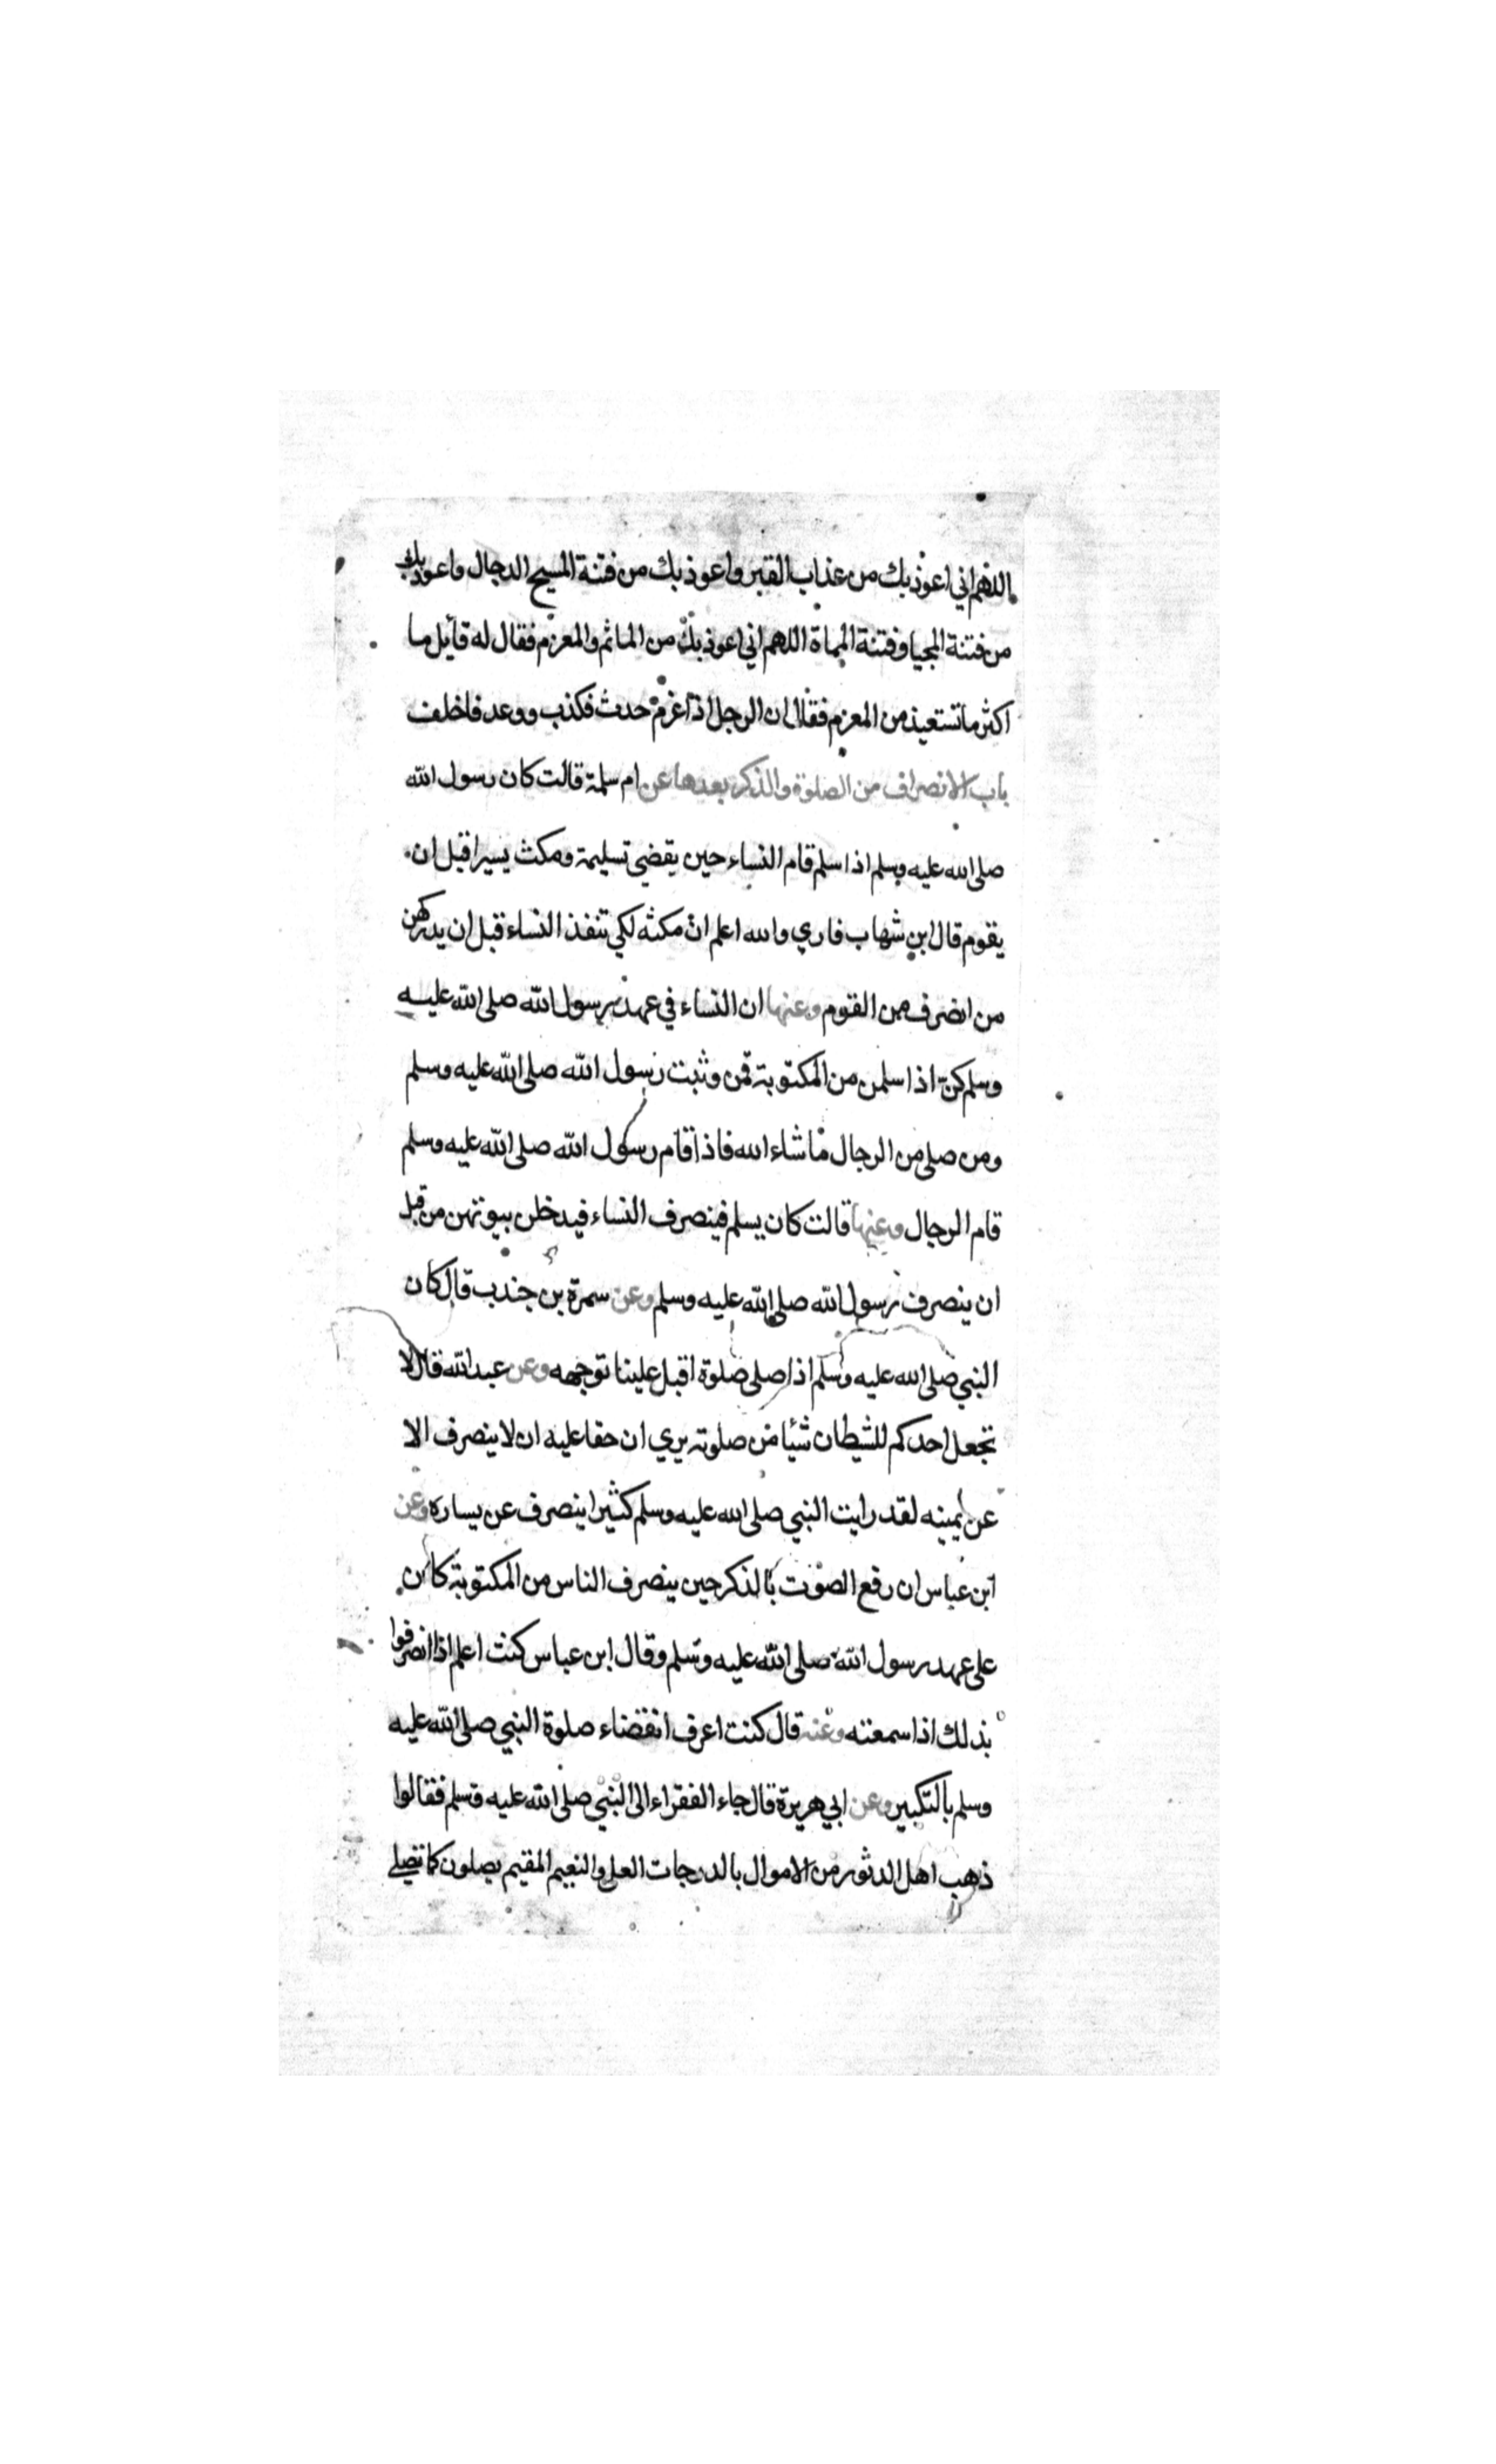 اللهم اني اعوذ بك من عذاب القبر واعوذ بك من فتنة المسيح الدجال واعوذ بك
من فتنة المحيا وفتنة المماة اللهم اني اعوذ بك من الماثم والمغرم فقال له قايل ما
اكثر ما تستعيذ من المغرم فقال ان الرجل اذا غرم حدث فكذب ووعد فاخلف
باب الانصراف من الصلوة والذكر بعدها عن ام سلمة قالت كان رسول الله
صلى الله عليه وسلم اذا سلم قام النساء حين يقضي تسليمة ومكث يسيرا قبل ان
يقوم قال ابن شهاب فاري والله اعلم ان مكثه لكي تنفذ النساء قبل ان يدركهن
من انصرف من القوم وعنها ان النساء في عهد رسول الله صلى الله عليه
وسلم كن اذا سلمن من المكتوبة قمن وثبت رسول الله صلى الله عليه وسلم
ومن صلى من الرجال ما شاء الله فاذا قام رسول الله صلى الله عليه وسلم
قام الرجال وعنها قالت كان يسلم فينصرف النساء فيدخلن بيوتهن من قبل
ان ينصرف رسول الله صلى الله عليه وسلم وعن سمرة بن جندب قال كان
النبي صلى الله عليه وسلم اذا صلى صلوة اقبل علينا بوجهه وعن عبد الله قال لا
تجعل احدكم للشيطان شئا من صلوته يري ان حقا عليه ان لا ينصرف الا
عن يمينه لقد رايت النبي صلى الله عليه وسلم كثيرا ينصرف عن يساره وعن
ابن عباس ان رفع الصوت بالذكر حين ينصرف الناس من المكتوبة كان
على عهد رسول الله صلى الله عليه وسلم وقال ابن عباس كنت اعلم اذا انصرفوا
بذلك اذا سمعته وعنه قال كنت اعرف انقضاء صلوة النبي صلى الله عليه
وسلم بالتكبير وعن ابي هريرة قال جاء الفقراء الى النبي صلى الله عليه وسلم فقالوا
ذهب اهل الدثور من الاموال بالدرجات العلى والنعيم المقيم يصلون كما نصلي